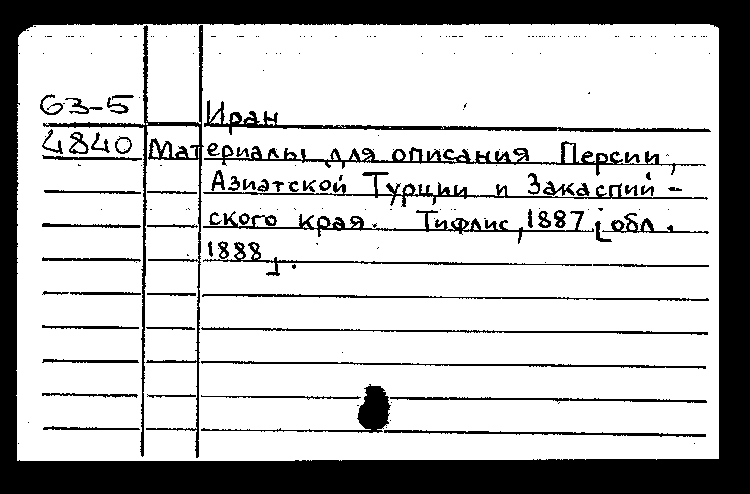 63-5 Иран
4840 Материалы для описания Персии,
Азиатской Турции и Закаспий-
ского края. Тифлис, 1887 [обл.
1888].